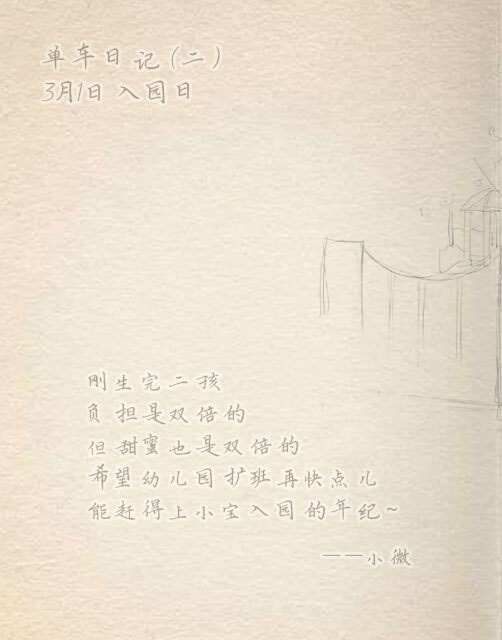 单车日记(二)
3月1日 入园日
刚生完二孩
负担是双倍的
但甜蜜也是双倍的
希望幼儿园扩班再快点儿
能赶得上小宝入园的年纪~
——小微